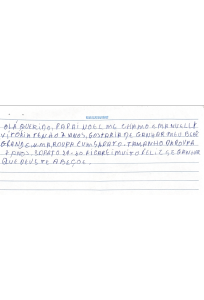 OLÁ QUERIDO, PAPAI NOEL ME CHAMO EMANUELLE
VITÓRIA TENHO 7 ANOS, GOSTARIA DE GANHAR
GRANDE, UMA ROUPA CUM SAPATO. TAMANHO DA ROUPA
7 ANOS. SAPATO 29-30 FICAREI MUITO FELIZ SE GANHAR
QUE DEUS TE ABEÇOE.